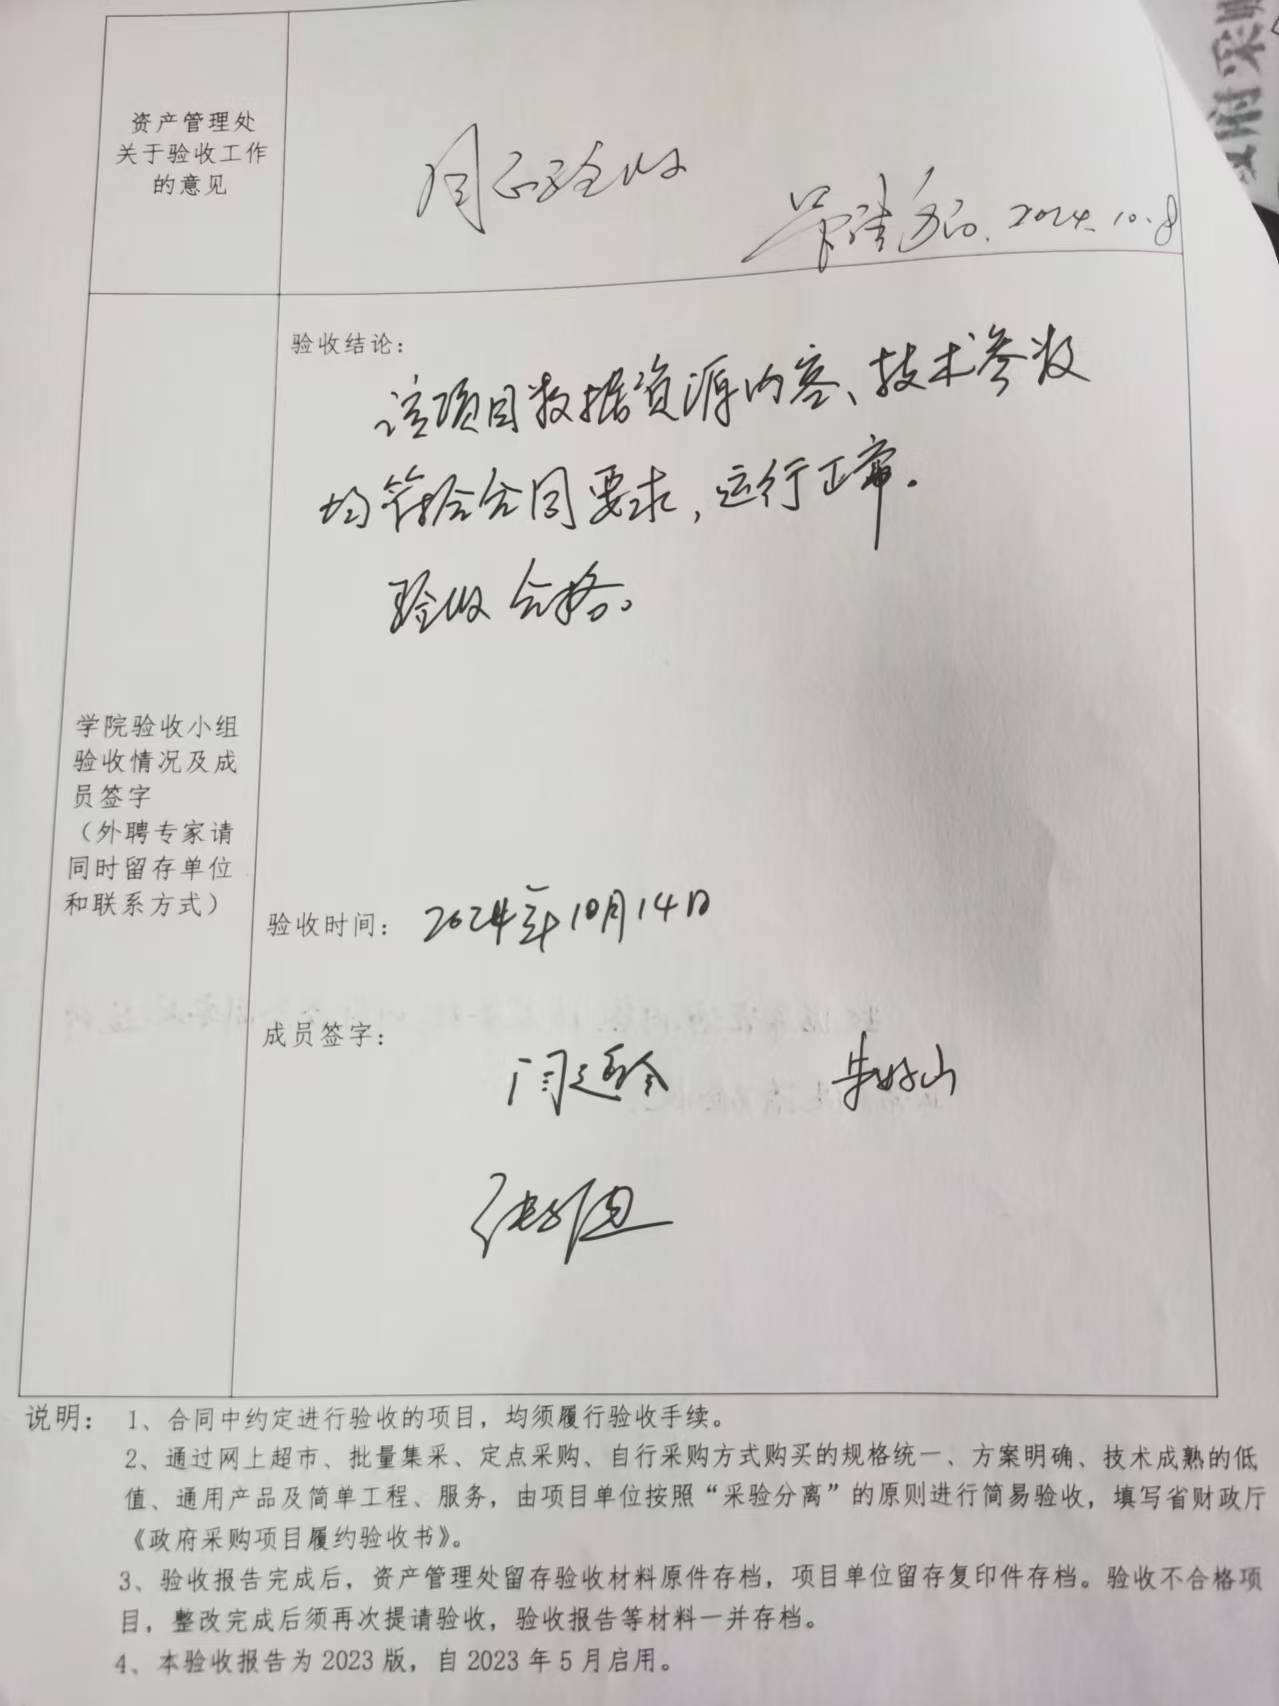 资产管理处
关于验收工作
的意见
同意验收
2024.10.8
验收结论：
该项目数据资源内容、技术参数
均符合合同要求，运行正常。
验收合格。
学院验收小组
验收情况及成
员签字
（外聘专家请
同时留存单位
和联系方式）
验收时间： 2024年10月14日
成员签字：
说明： 1、合同中约定进行验收的项目，均须履行验收手续。
2、通过网上超市、批量集采、定点采购、自行采购方式购买的规格统一、方案明确、技术成熟的低
值、通用产品及简单工程、服务，由项目单位按照“采验分离”的原则进行简易验收，填写省财政厅
《政府采购项目履约验收书》。
3、验收报告完成后，资产管理处留存验收材料原件存档，项目单位留存复印件存档。验收不合格项
目，整改完成后须再次提请验收，验收报告等材料一并存档。
4、本验收报告为 2023 版，自 2023 年 5 月启用。